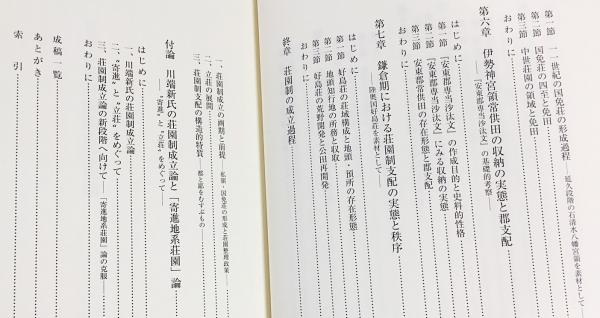 第一節 一二世紀の国免荘の形成過程 延久段階の石清水八幡宮領を素材として
第二節 国免荘の四至と免田
第三節 中世荘園の領域と免田
おわりに
第六章 伊勢神宮領常供田の収納の実態と郡支配
――『安東郡専当沙汰文』の基礎的考察
はじめに
第一節 『安東郡専当沙汰文』の作成目的と史料的性格
第二節 『安東郡専当沙汰文』にみる収納の実態
第三節 安東郡常供田の存在形態と郡支配
おわりに
第七章 鎌倉期における荘園制支配の実態と秩序
――陸奥国好島荘を素材として――
はじめに
第一節 好島荘の荘域構成と地頭・預所の存在形態
第二節 地頭知行地の所務と収取
第三節 好島荘の荒野開発と公田再開発
おわりに
終章 荘園制の成立過程
一、荘園制成立の画期と前提 ――私領・国免荘の形成と荘園整理政策――
二、立荘の展開
三、荘園制支配の構造的特質 ――都と鄙をむすぶもの
付論 川端新氏の荘園制成立論と「寄進地系荘園」論
――“寄進”と“立荘”をめぐって――
はじめに
一、川端新氏の荘園制成立論
二、“寄進”と“立荘”をめぐって
三、荘園制成立論の新段階へ向けて――「寄進地系荘園」論の克服
おわりに
成稿一覧
あとがき
索引